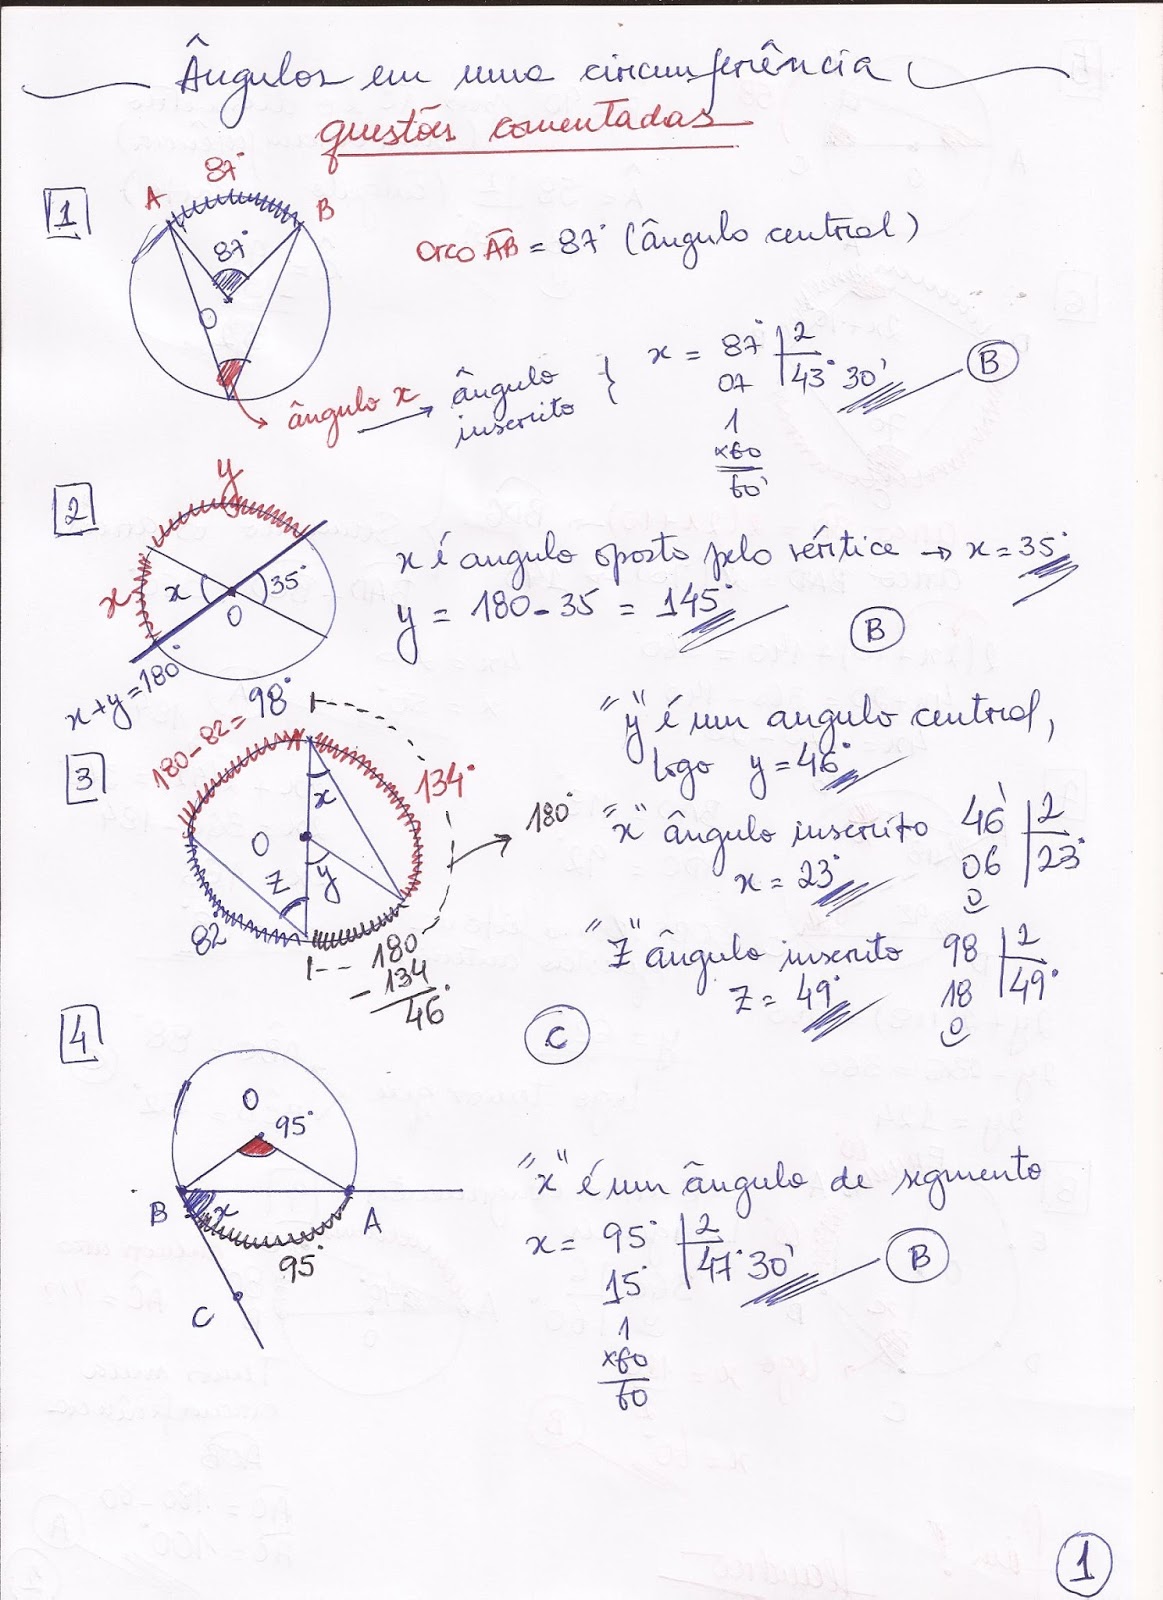 Ângulos em uma circunferência
questões comentadas
1
87°
A
B
87°
O
arco AB = 87° (ângulo central)
ângulo x → ângulo inscrito
x = 87° | 2
07 43° 30'
1
x60
60'
B
2
y
x
x
35°
O
x+y=180°
x é angulo oposto pelo vértice → x = 35°
y = 180 - 35 = 145°
B
3
180-82= 98°
134°
180°
x
O
y
Z
82°
180
-134
46°
"y" é um angulo central,
logo y = 46°
"x" ângulo inscrito 46' | 2
x = 23° 06 23°
0
"Z" ângulo inscrito 98 | 2
Z = 49° 18 49°
0
C
4
O
95°
B
x
A
95°
C
"x" é um ângulo de segmento
x = 95° | 2
15° 47° 30'
1
x60
60
B
1